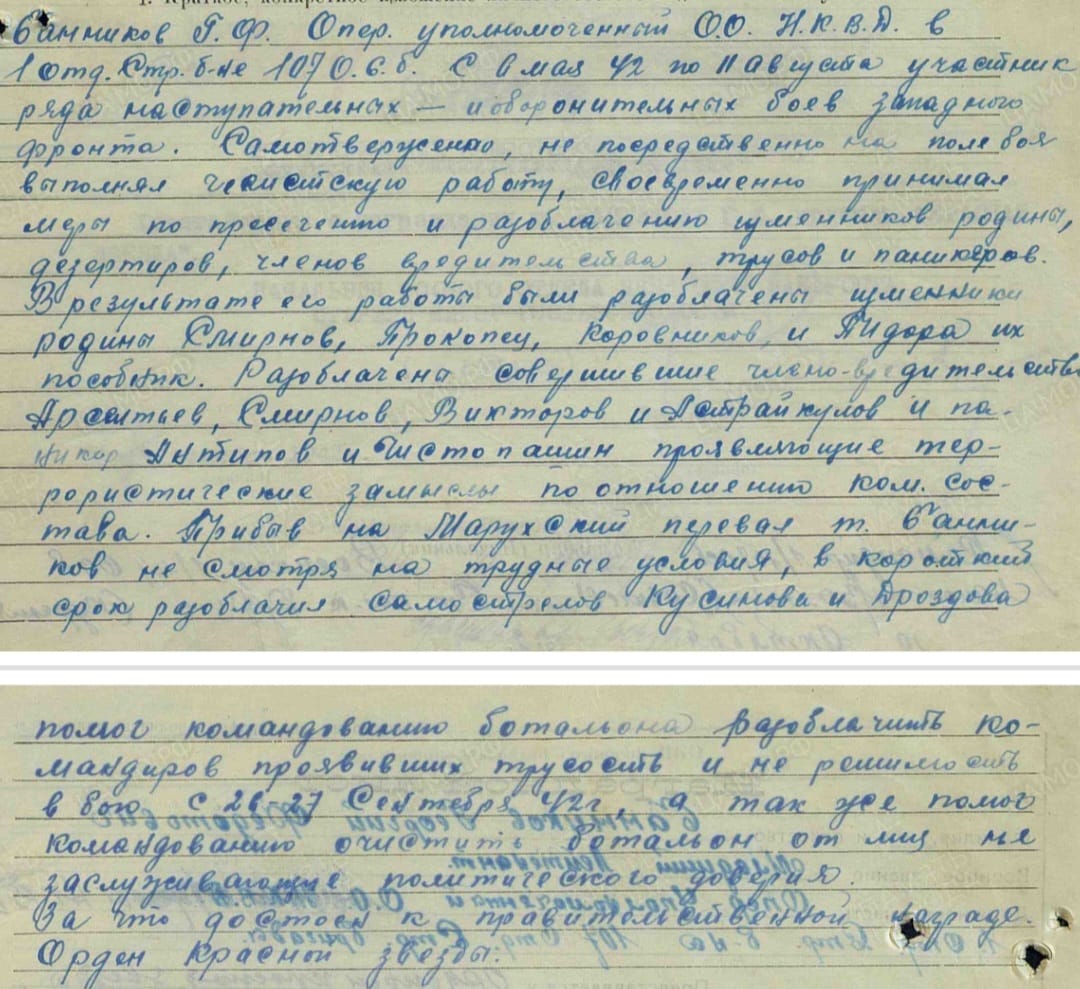 1. Краткое, конкретное изложение
Банников Г.Ф. Опер. уполномоченный О.О. Н.К.В.Д. в
1 отд. Стр. б-не 107 О.б.б. С 6 мая 42 по 11 августа участник
ряда наступательных — и оборонительных боев западного
фронта. Самотверженно, не посредственно на поле боя
выполнял чекистскую работу, своевременно принимал
меры по пресечению и разоблачению изменников родины,
дезертиров, членов вредительства, трусов и паникеров.
В результате его работы были разоблачены изменники
родины Смирнов, Прокопец, Коровников, и Пидора их
пособник. Разоблачены совершившие члено-вредительство
Арсентьев, Смирнов, Викторов и Астрайкулов и па-
никер Антипов и Чистопашин проявляющие тер-
рористические замыслы по отношению ком. сос-
тава. Прибыв на Марухский перевал т. Банни-
ков не смотря на трудные условия, в короткий
срок разоблачил самострелов Кусинова и Дроздова
помог командованию ботальона разоблачить ко-
мандиров проявивших трусость и не решимость
в бою с 26 27 Сентября 42 г, а так уже помог
командованию очистить ботальон от лиц не
заслуживающие политического доверия.
За что достоен к правительственной награде.
Орден Красной звезды.